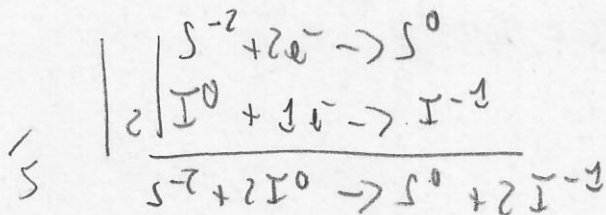 S⁻² + 2e⁻ -> S⁰
2| I⁰ + 1e⁻ -> I⁻¹
S⁻² + 2I⁰ -> S⁰ + 2I⁻¹